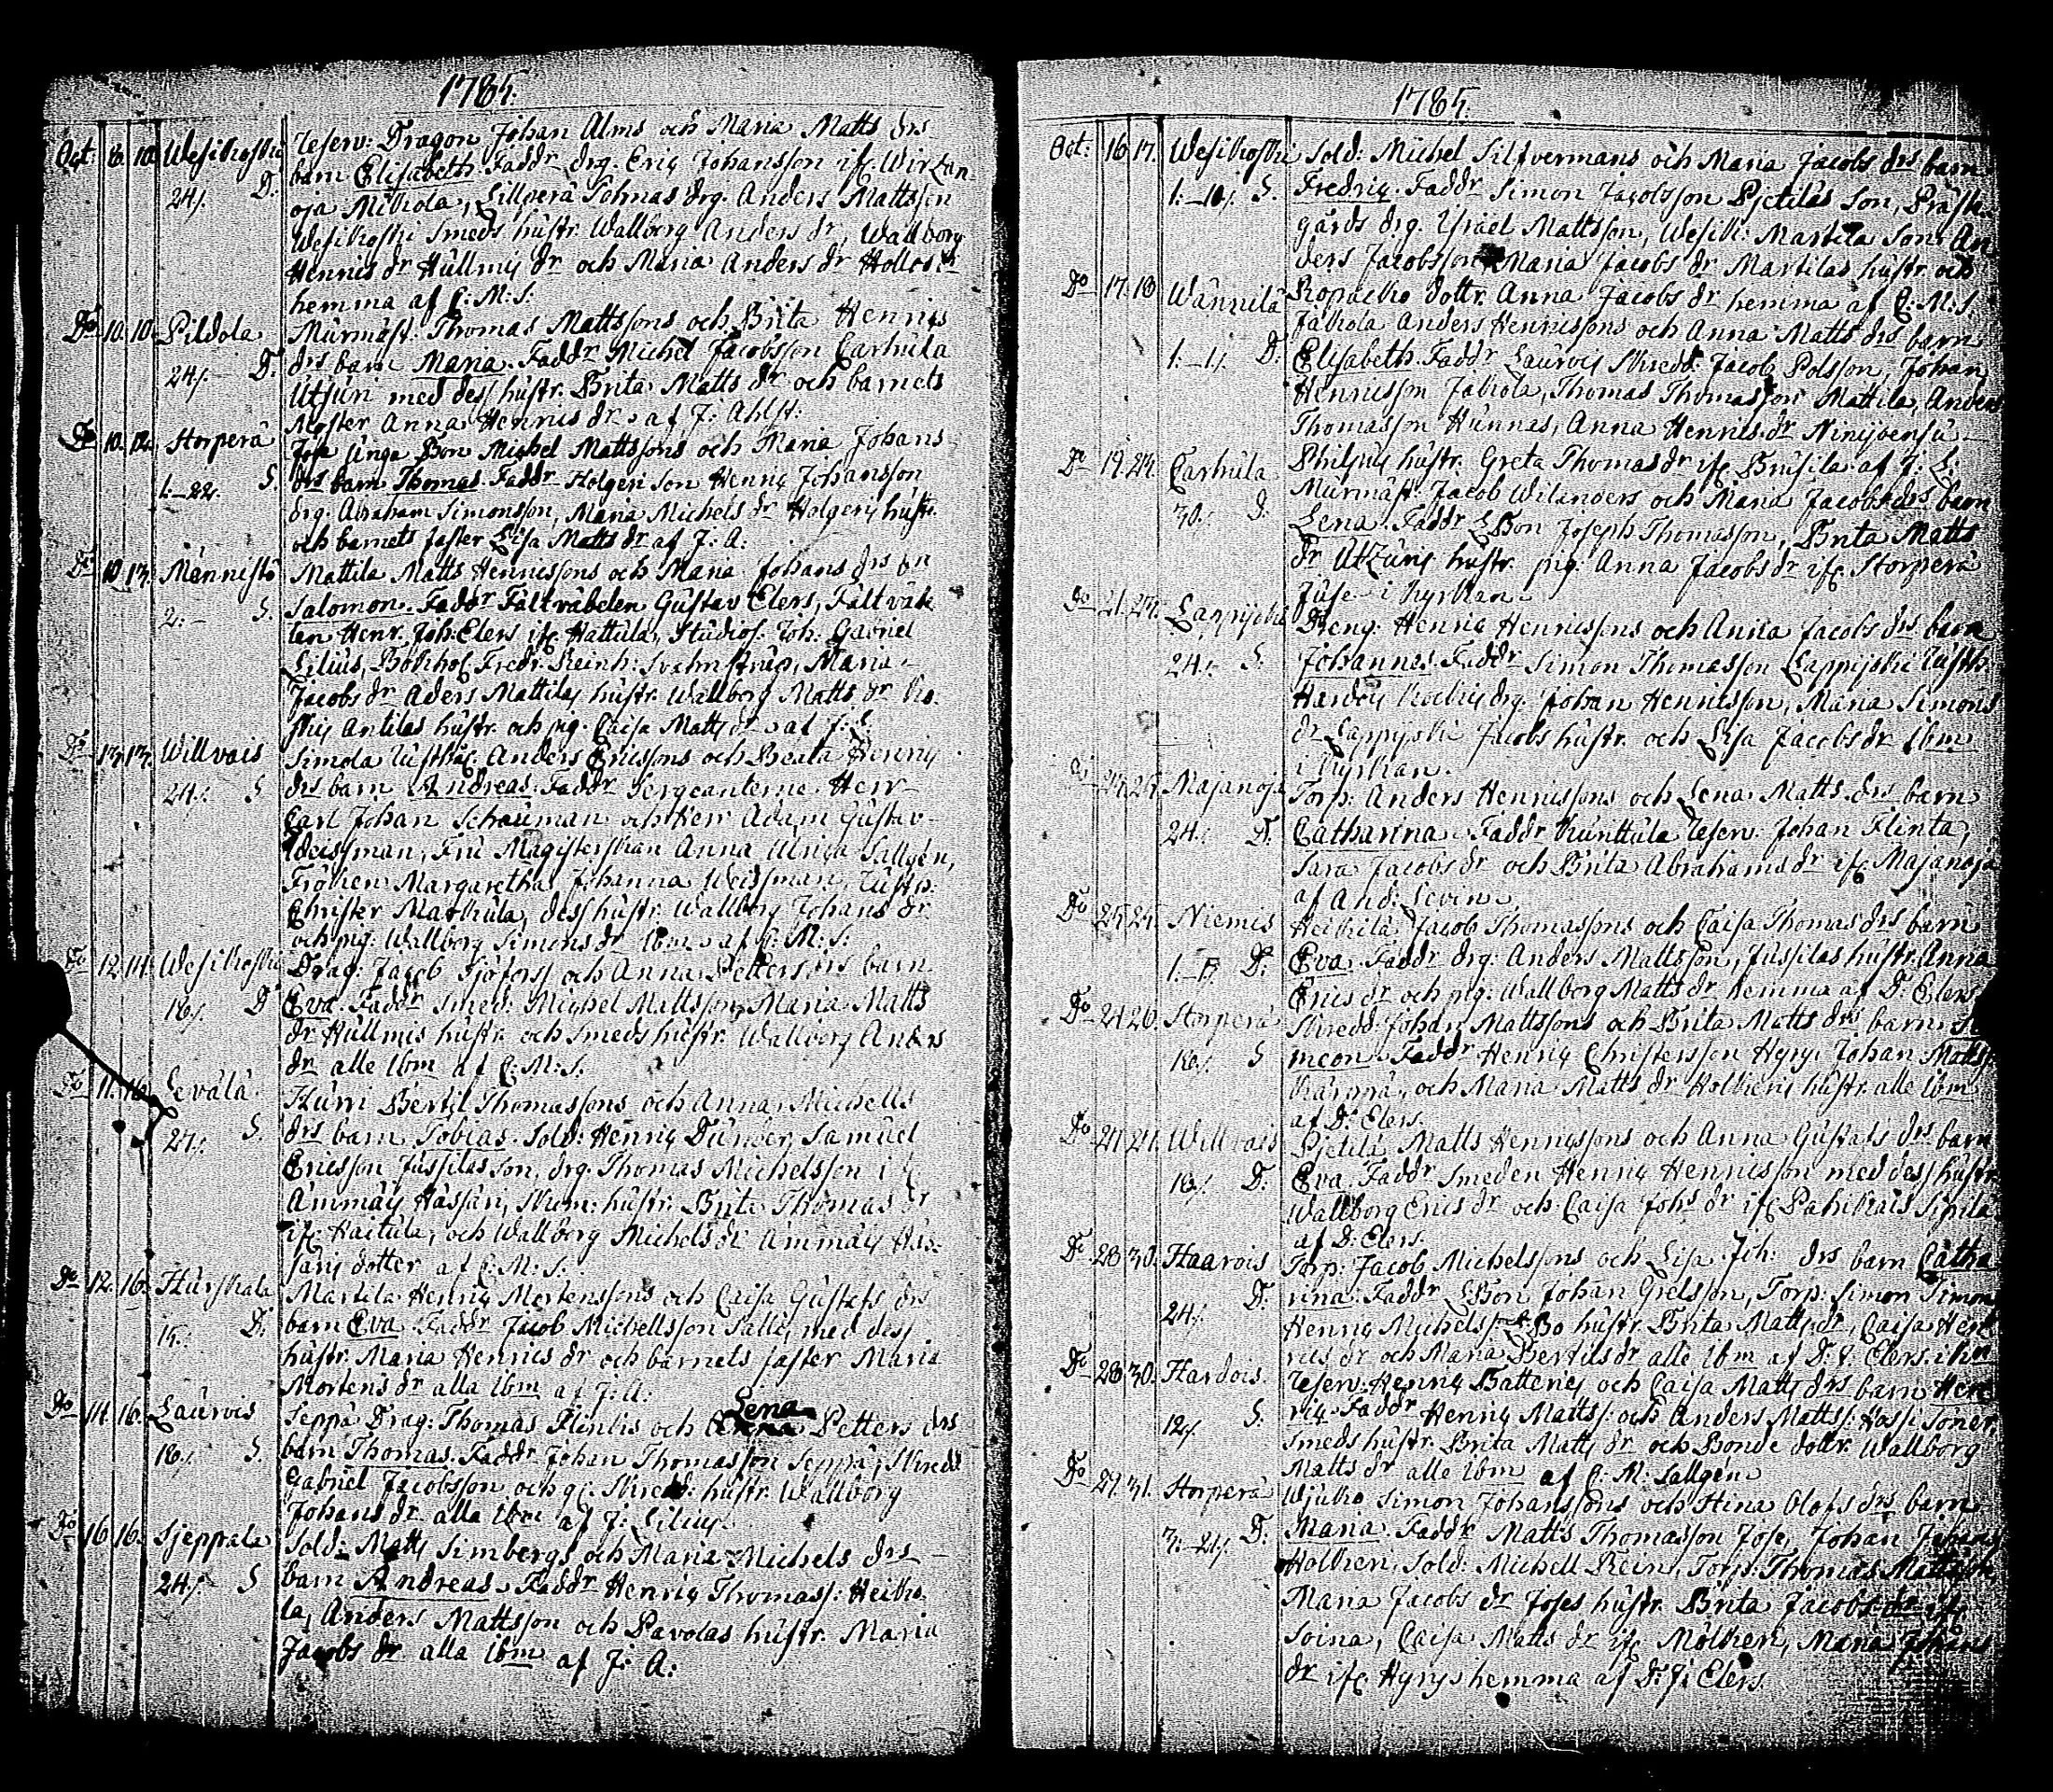 1785.
Oct: 8. 10. Wesikoski Reserv: Dragon Johan Alms och Maria Matts drs
barn Elisabeth. Faddr drg. Eric Johansson ifr. Wirtan
24/. D. oja Mikola, Lillperä Tohmas drg. Anders Mattsson
Wesikoski Smeds hustr. Wallborg Anders dr, Wallborg
Henrics dr Hullmis dr och Maria Anders dr
hemma af C: M: S:
Do 10. 10. Pildola Murmäst. Thomas Mattssons och Brita Henrics
24/. D. drs barn Maria. Faddr Michel Jacobsson Carhula
Utsuri med dess hustr. Brita Matts dr och barnets
Moster Anna Henrics dr af J: Ahlst:
Do 10. 12. Storperä Jose unga Bon Michel Mattssons och Maria Johans
1.-22. S. drs barn Thomas. Faddr Holgeri Son Henric Johansson
drg. Abraham Simonsson, Maria Michels dr Holgeris hustr.
och barnets faster Lisa Matts dr af J: A:
Do 10. 13. Mennistö Mattila Matts Henricssons och Maria Johans drs bn
2.- S. Salomon. Faddr Fältväbelen Gustav Elers, Fältväbe
len Henr. Joh: Elers ifr. Hattula, Studios. Joh: Gabriel
Lilius, Bokhol. Fredr. Reinh: Svahnström, Maria
Jacobs dr Aders Mattilas hustr. Wallborg Matts dr Ko-
skis Antilas hustr. och pig. Caisa Matts dr af J: L:
Do 13. 13. Willvais Simola Rusth. Anders Ericssons och Beata Henrics
24/. S drs barn Andreas. Faddr Sergeanterne Herr
Carl Johan Schauman och Herr Adam Gustav
Weissman, Fru Magisterskan Anna Ulrica Sallgén,
Fröken Margaretha Johanna Weissman, Rusth:
Christer Markula, dess hustr. Wallborg Johans dr
och pig: Wallborg Simons dr ibm af C: M: S:
Do 12. 14. Wesikoski Drag: Jacob Sjöfors och Anna Petters drs barn
18/. D Eva. Faddr Smed: Michel Mattsson, Maria Matts
dr Hullmis hustr. och Smeds hustr. Wallborg Anders
dr alle ibm af C: M: S.
Do 11. 16. Levälä Hurri Bertil Thomassons och Anna Michells
27/. S. drs barn Tobias. Sold: Henric Dunder, Samuel
Ericsson Jussilas son, drg. Thomas Michelsson i
Ammäys Hassan, hustr: Brita Thomas dr
ifr. Haitula, och Wallborg Michels dr Ammäys Has-
sans dotter af C: M: S:
Do 12. 16. Hurskala Martila Henric Mortenssons och Caisa Gustafs drs
15. D: barn Eva. Faddr Jacob Michellsson Salli, med dess
hustr. Maria Henrics dr och barnets faster Maria
Mortens dr alla ibm af J: A:
Do 14. 16. Laurois Seppä Drag: Thomas Flinkis och Lena Petters drs
18/. S barn Thomas. Faddr Johan Thomasson Seppä, Skredd
Gabriel Jacobsson och gl. Skredd: hustr. Wallborg
Johans dr alla ibm af J: Lilius.
Do 16. 16. Sjeppala Sold: Matts Simbergs och Maria Michels drs
24/. S barn Andreas. Faddr Henric Thomass: Heikko-
la, Anders Mattsson och Pavolas hustr. Maria
Jacobs dr alla ibm af J: A:
1785.
Oct: 16. 17. Wesikoski Sold: Michel Silfvermans och Maria Jacobs drs barn
1.-10/. S. Fredric. Faddr Simon Jacobsson Pjetilas Son, Präst-
gårds drg. Israel Mattsson, Wesik: Martila Son An
ders Jacobsson, Maria Jacobs dr Martilas hustr. och
Kopalko dottr. Anna Jacobs dr hemma af C: M: S
Do 17. 18. Wännilä Jakola Anders Henricssons och Anna Matts drs barn
1.-1/. D. Elisabeth. Faddr Laurois Skredd. Jacob Polsson, Johan
Henricsson Jakola, Thomas Thomasson Mattila, Anders
Thomasson Hunnas, Anna Henrics dr
hustr. Greta Thomas dr ifr. Brusila af J: L:
Do 19. 24. Carhula Murmäst. Jacob Wilanders och Maria Jacobs drs barn
30. D. Lena. Faddr LBon Joseph Thomasson, Brita Matts
dr Utzuris hustr. pig: Anna Jacobs dr ifr. Storperä
Juse i Kyrkan.
Do 21. 24. Lappijoki Dreng: Henric Henricssons och Anna Jacobs drs barn
24/. S. Johannes. Faddr Simon Thomasson Lappijoki Rusth.
drg. Johan Henricsson, Maria Simons
dr Lappijoki Jacobs hustr. och Lisa Jacobs dr ibm
i Kyrkan.
24. 25. Majanoja Torp: Anders Henricssons och Lena Matts drs barn
24. D. Catharina. Faddr Kunttula Reserv. Johan Flinta,
Sara Jacobs dr och Brita Abrahams dr ifr. Majanoja
af And: Levin.
Do 25. 25. Niemis Heikkilä Jacob Thomassons och Caisa Thomas drs barn
D: Eva. Faddr drg: Anders Mattsson, Jussilas hustr. Anna
Erics dr och pig. Wallborg Matts dr hemma af D: Elers
Do 24. 26. Storperä Skredd: Johan Mattssons och Brita Matts drs barn Si
18/. S meon. Faddr Henric Christersson Hyry, Johan Matts
och Maria Matts dr Holkeris hustr. alle ibm
af D: Elers.
Do 27. 27. Willvais Pjetilä Matts Henricssons och Anna Gustafs drs barn
18/. D: Eva. Faddr Smeden Henric Henricsson med dess hustr.
Wallborg Erics dr och Caisa Johs dr ifr. Pahikais Sipila
af D: Elers.
Do 28. 30. Haarois Torp: Jacob Michelssons och Lisa Joh: drs barn Catha
24/. D. rina. Faddr LBon Johan Grelsson, Torp: Simon Simon
Henric Michelss: LBo hustr. Brita Matts dr, Caisa Hen
rics dr och Maria Bertils dr alle ibm af D: J: Elers.
Do 28. 30. Hardois. Reserv: Henric Batteries och Caisa Matts drs barn Hen
12/. S. ric. Faddr Henric Matts: och Anders Matts: Hossi Söner,
Smeds hustr. Brita Matts dr och Bonde dottr. Wallborg
Matts dr alle ibm af C: M: Sallgén
Do 29. 31. Storperä Simon Johanssons och Stina Olofs drs barn
3.-24/. D. Maria. Faddr Matts Thomasson Jose, Johan Johans
Holkeri, Sold: Michell Rein, Torp: Thomas Mattsson
Maria Jacobs dr Joses hustr. Brita Jacobs dr ifr
Soina, Caisa Matts dr ifr. Mölkeri, Maria Johans
dr ifr. Hyrys hemma af D: J: Elers.